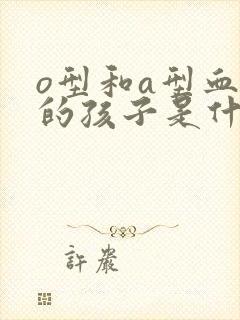 o型和a型血
的孩子是什
許巖